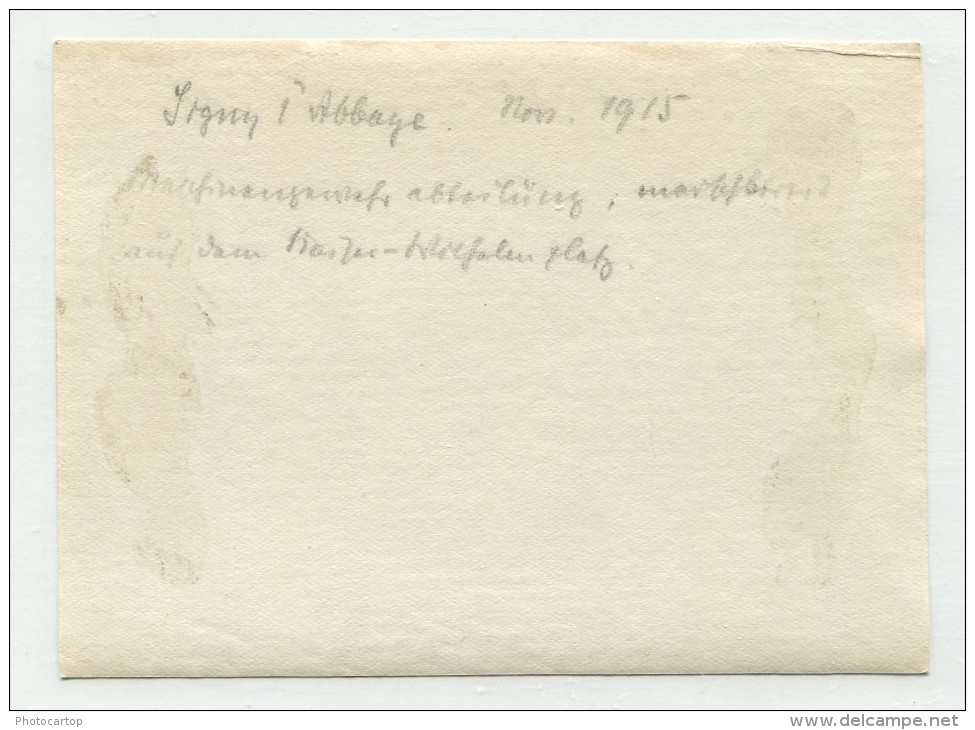 Signy l'Abbaye. Nov. 1915
Maschinengewehrabteilung, marschbereit
auf dem Kaiser-Wilhelm platz.
Photocartop
www.delcampe.net